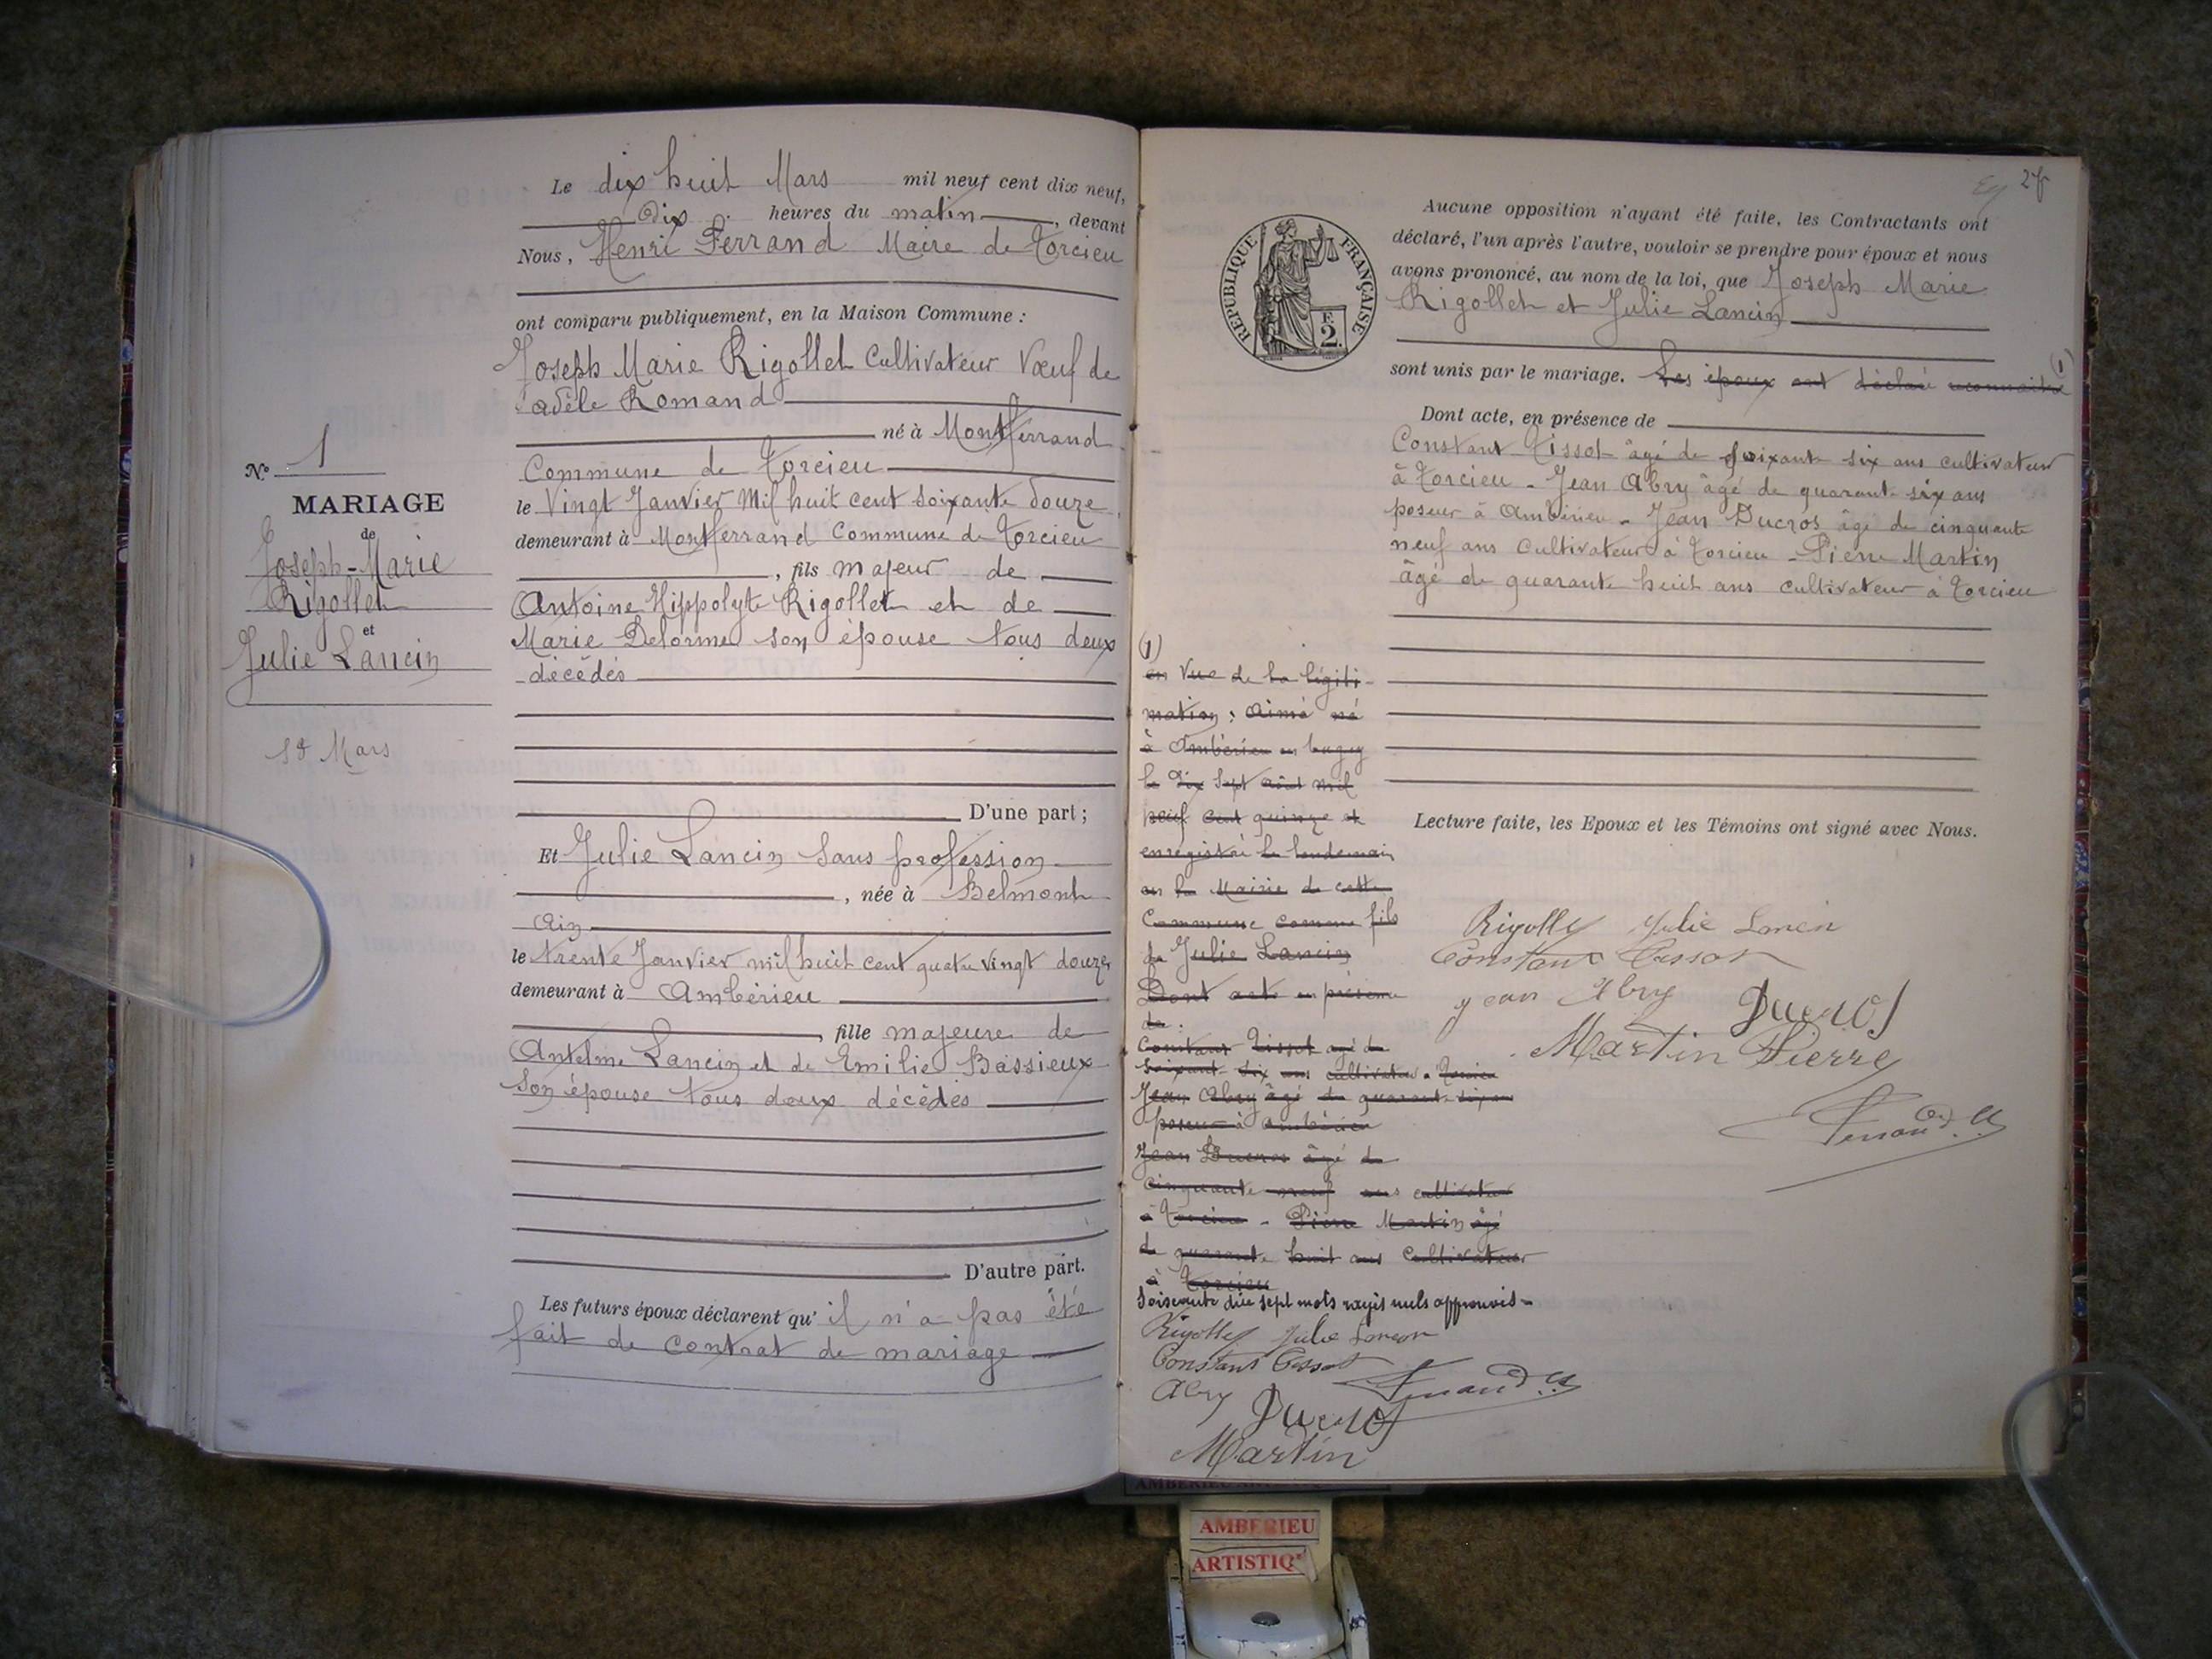 Le dix huit Mars mil neuf cent dix neuf,
dix heures du matin, devant
Nous, Henri Ferrand Maire de Torcieu
ont comparu publiquement, en la Maison Commune :
Joseph Marie Rigollet Cultivateur Vœuf de
adèle Romand
né à Montferrand
Commune de Torcieu
le Vingt Janvier Mil huit cent soixante douze,
demeurant à Montferrand Commune de Torcieu
, fils majeur de
Antoine Hippolyte Rigollet et de
Marie Delorme son épouse tous deux
décédés
D'une part ;
Et Julie Lancin Sans profession
, née à Belmont
Ain
le trente Janvier mil huit cent quatre vingt douze,
demeurant à Ambérieu
, fille majeure de
Antelme Lancin et de Emilie Bassieux
Son épouse tous deux décédés
D'autre part.
Les futurs époux déclarent qu' il n'a pas été
fait de contrat de mariage
N° 1
MARIAGE
de
Joseph-Marie
Rigollet
et
Julie Lancin
18 Mars
27
REPUBLIQUE FRANÇAISE
F.
2.
Aucune opposition n'ayant été faite, les Contractants ont
déclaré, l'un après l'autre, vouloir se prendre pour époux et nous
avons prononcé, au nom de la loi, que Joseph Marie
Rigollet et Julie Lancin
sont unis par le mariage. Les époux ont déclaré reconnaitre (1)
Dont acte, en présence de
Constant Tissot âgé de soixante six ans cultivateur
à Torcieu - Jean Abry âgé de quarante six ans
poseur à Ambérieu - Jean Ducros âgé de cinquante
neuf ans Cultivateur à Torcieu - Pierre Martin
âgé de quarante huit ans cultivateur à Torcieu
Lecture faite, les Epoux et les Témoins ont signé avec Nous.
Rigollet Julie Lancin
Constant Tissot
Jean Abry Ducros
Martin Pierre
Ferrand
(1)
en Vue de la légiti-
mation : Aimé né
à Ambérieu en bugey
le dix sept août mil
neuf cent quinze et
enregistré le lendemain
en la Mairie de cette
Commune comme fils
de Julie Lancin
Dont acte en présence
de :
Constant Tissot agé de
soixante six ans cultivateur à Torcieu
Jean Abry âgé de quarante six ans
poseur à Ambérieu
Jean Ducros âgé de
cinquante neuf ans cultivateur
à Torcieu - Pierre Martin âgé
de quarante huit ans Cultivateur
à Torcieu
Soixante dix sept mots rayés nuls approuvés -
Rigollet Julie Lancin
Constant Tissot Ferrand
Abry
Ducros
Martin
AMBERIEU
ARTISTIQ